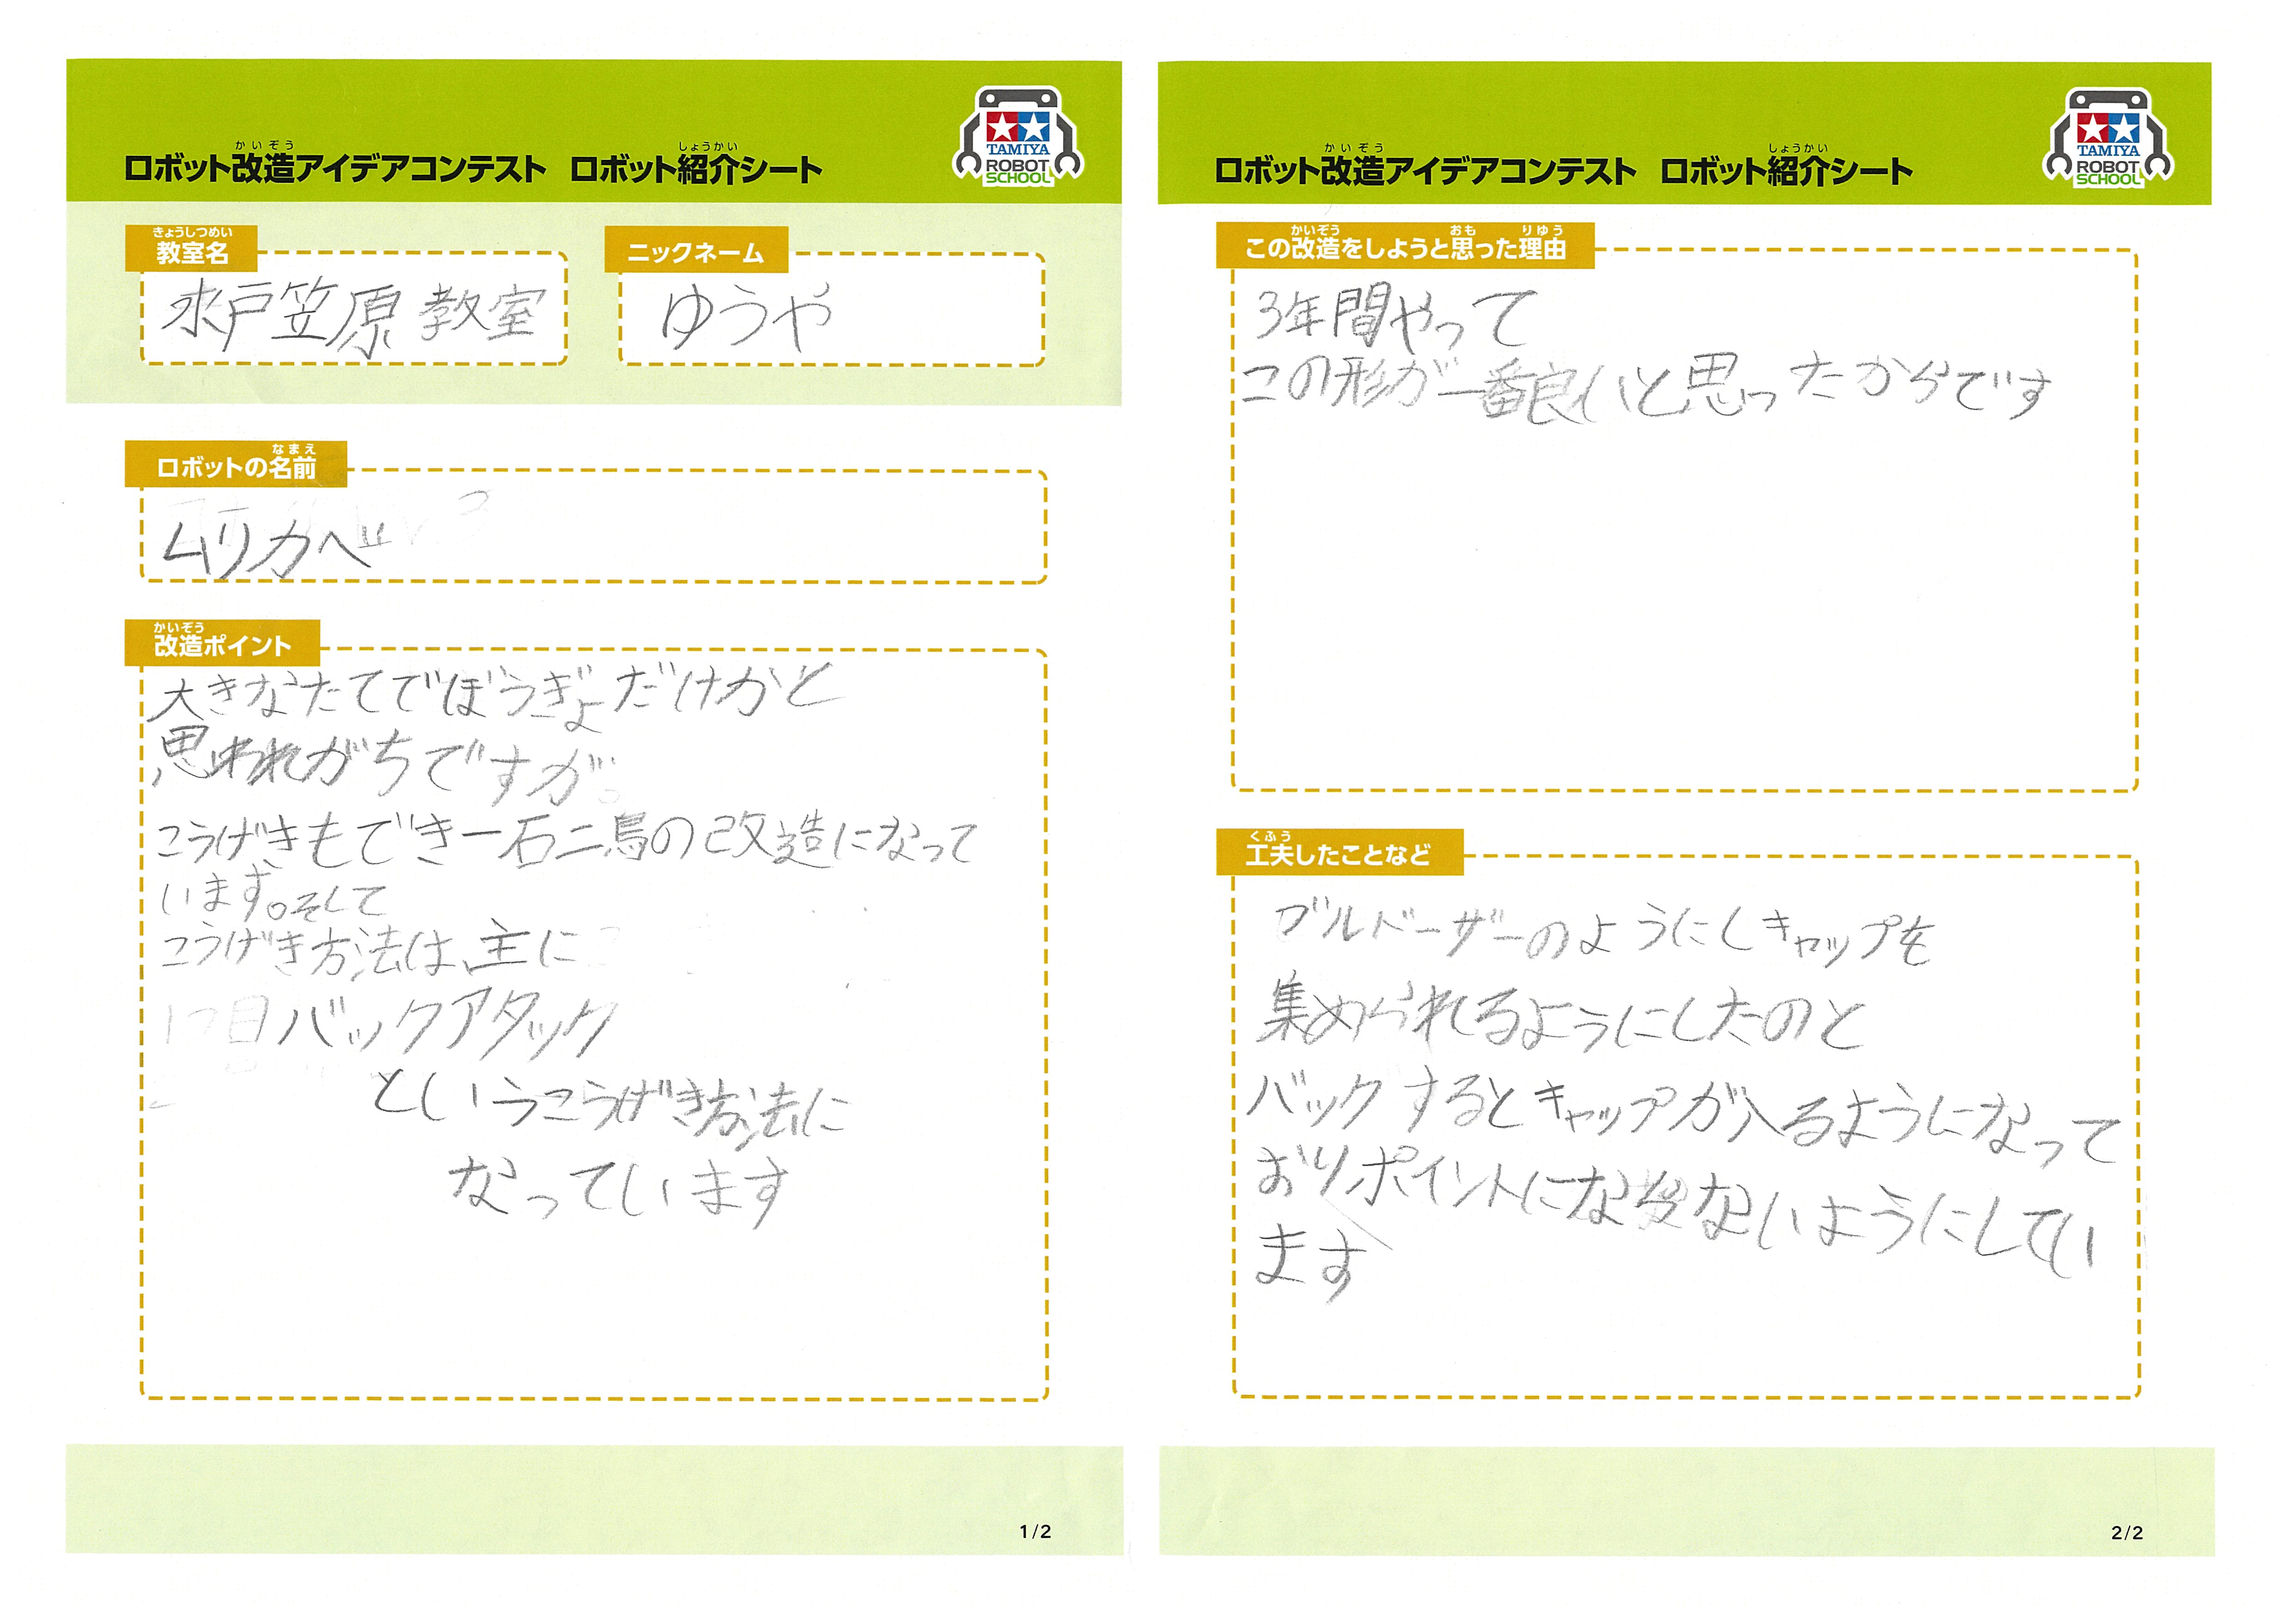 かいぞう しょうかい
ロボット改造アイデアコンテスト ロボット紹介シート
TAMIYA
ROBOT
SCHOOL
きょうしつめい
教室名
水戸笠原教室
ニックネーム
ゆうや
なまえ
ロボットの名前
ムリカベ
かいぞう
改造ポイント
大きなたてでぼうぎょだけかと
思われがちですが
こうげきもでき一石二鳥の改造になって
います。そして
こうげき方法は、主に
1つ目バックアタック
というこうげき方法に
なっています
1/2
かいぞう しょうかい
ロボット改造アイデアコンテスト ロボット紹介シート
TAMIYA
ROBOT
SCHOOL
かいぞう おも りゆう
この改造をしようと思った理由
3年間やって
この形が一番良いと思ったからです
くふう
工夫したことなど
ブルドーザーのようにしキャップを
集められるようにしたのと
バックするとキャップが入るようになって
おりポイントにな ないようにしてい
ます
2/2